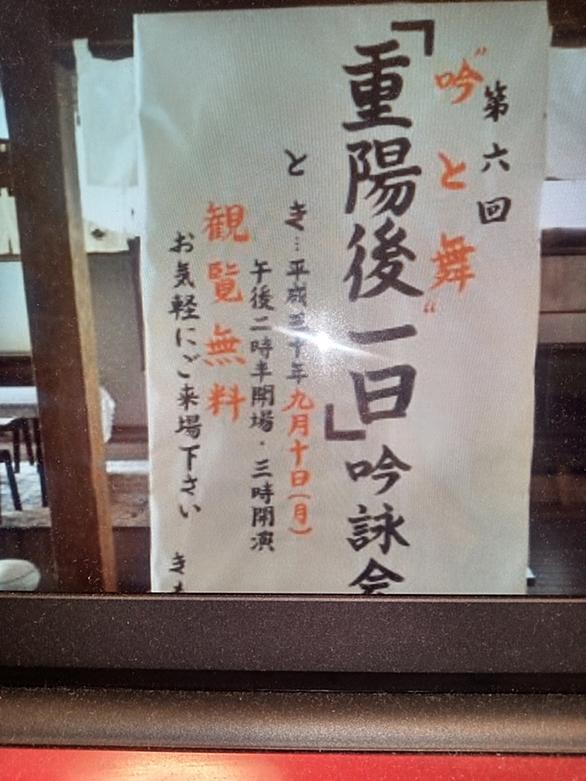 第六回
"吟と舞"
「重陽後一日」吟詠会
とき…平成三十年九月十日(月)
午後二時半開場・三時開演
観覧無料
お気軽にご来場下さい